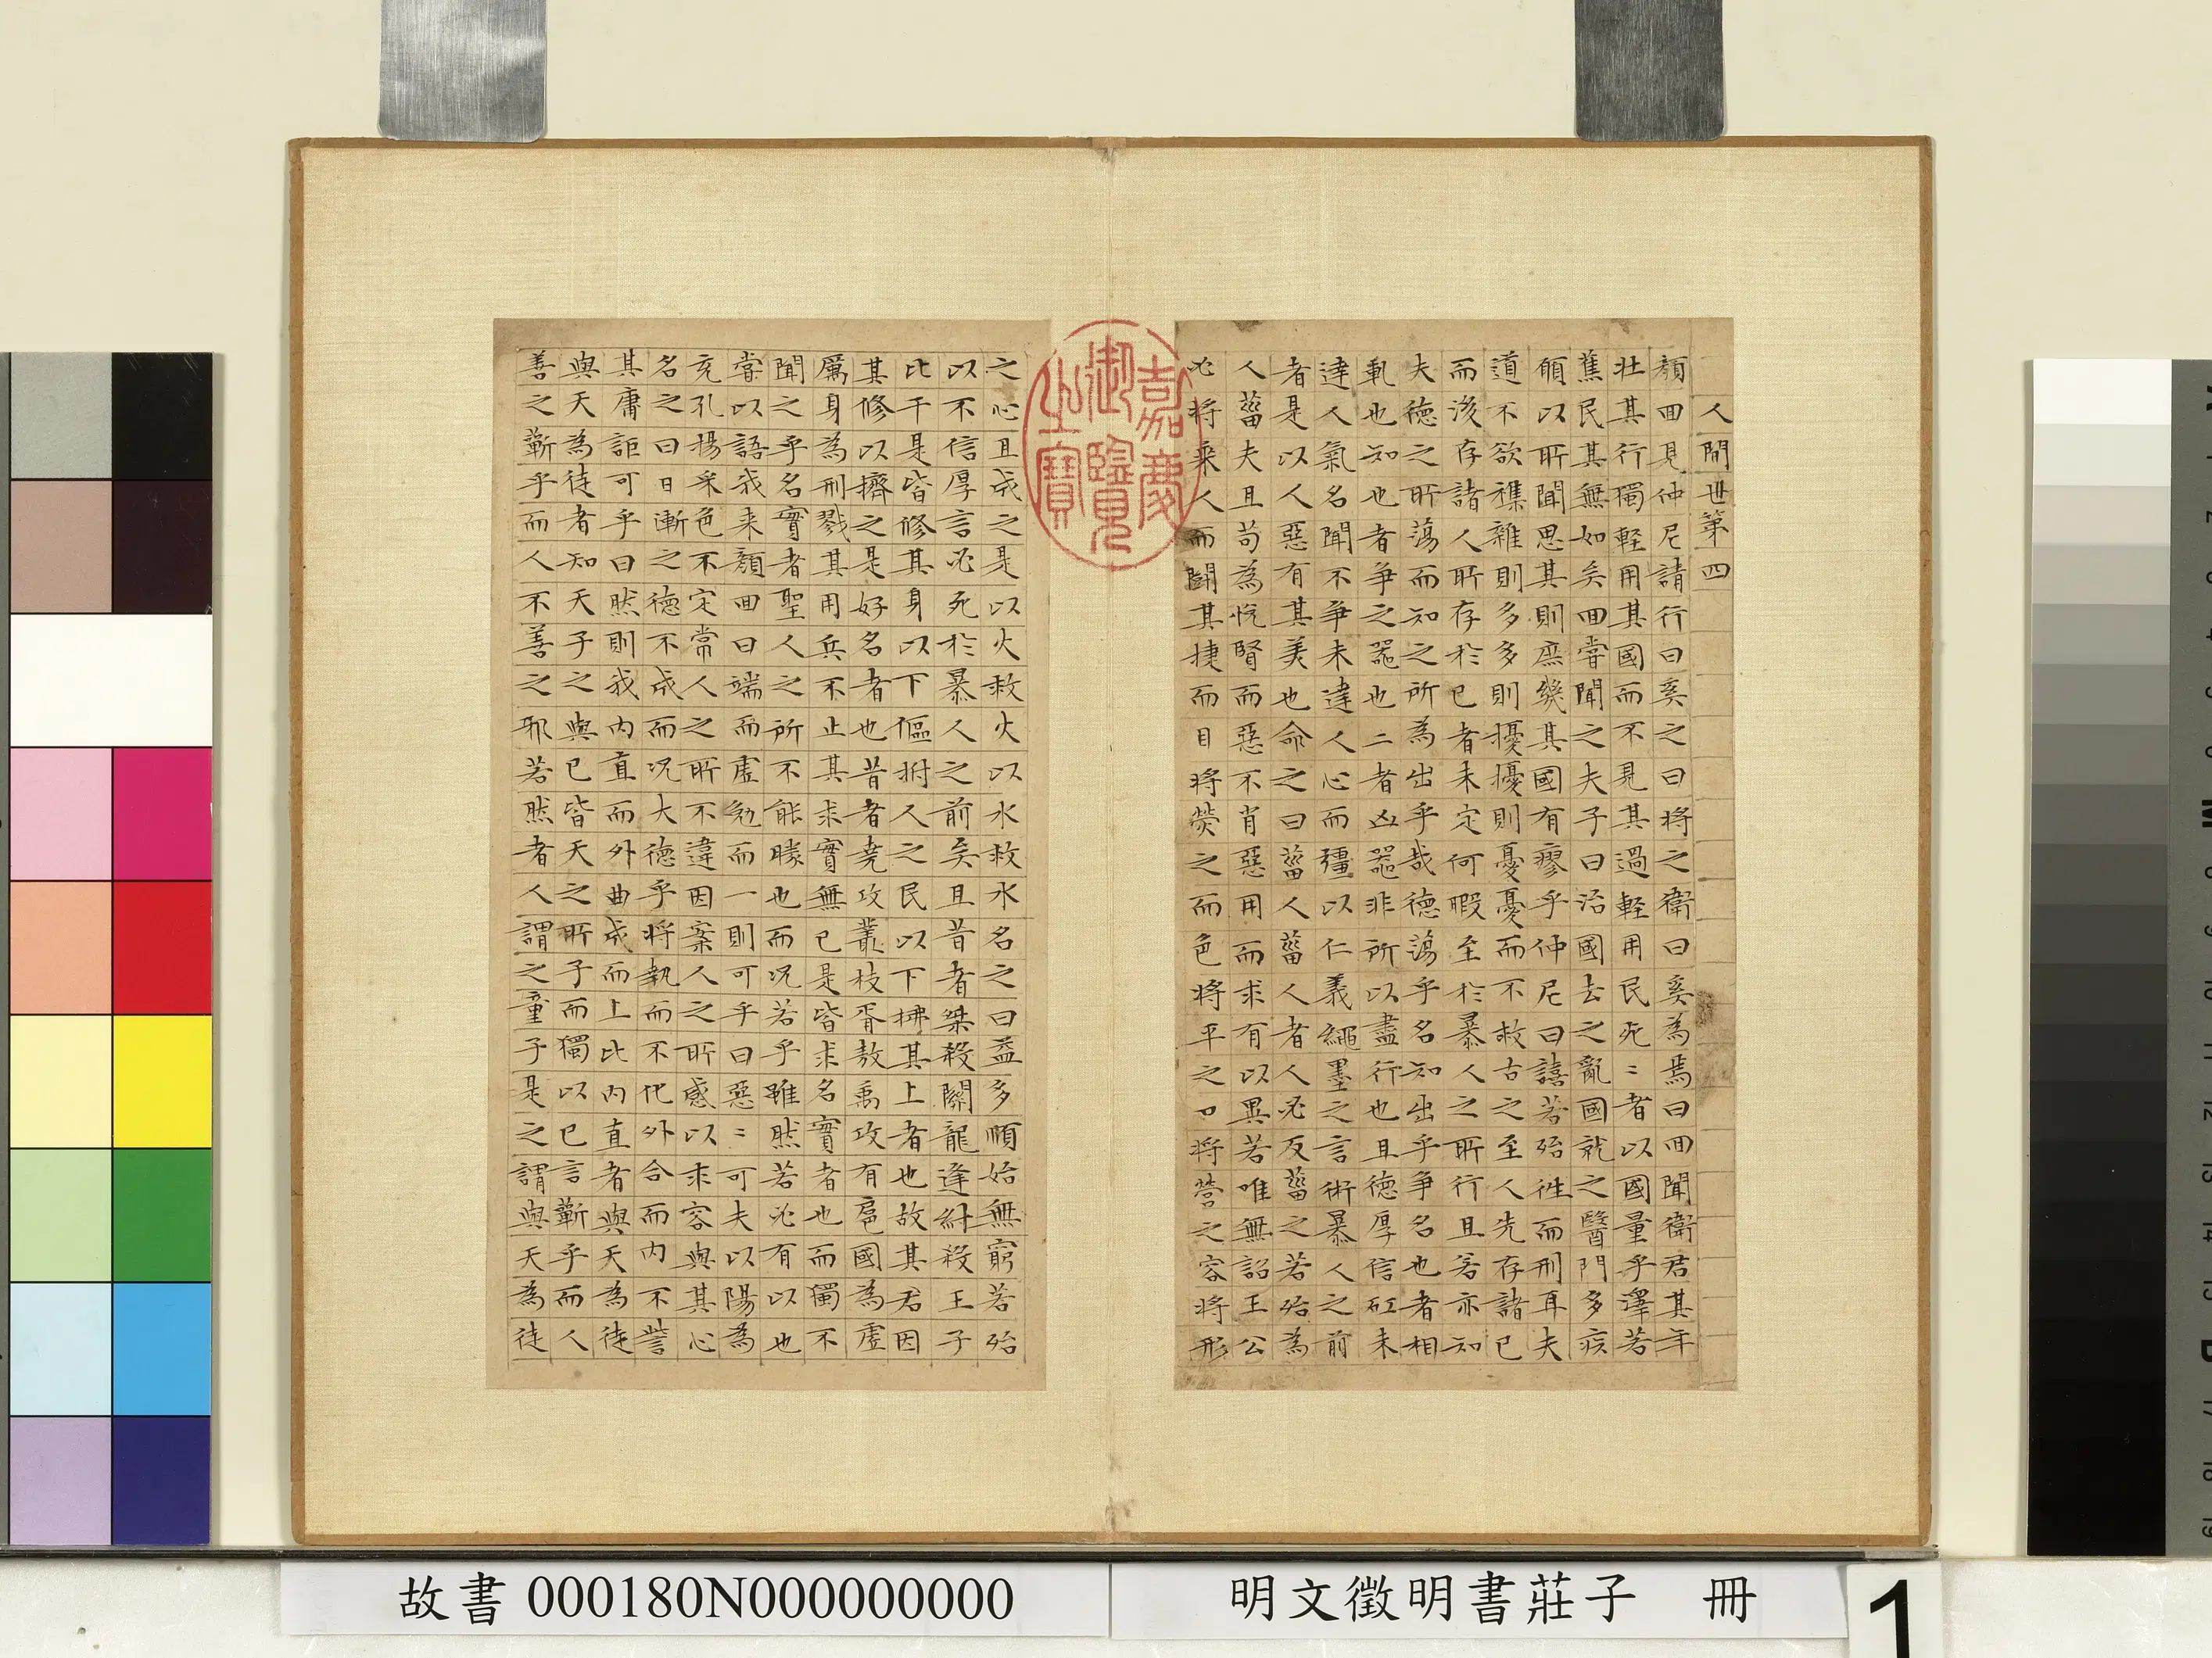 人間世第四
顏回見仲尼請行曰奚之曰將之衛曰奚為焉曰回聞衛君其年
壯其行獨輕用其國而不見其過輕用民死〻者以國量乎澤若
蕉民其無如矣回嘗聞之夫子曰治國去之亂國就之醫門多疾
願以所聞思其則庶幾其國有瘳乎仲尼曰譆若殆往而刑耳夫
道不欲襍雜則多多則擾擾則憂憂而不救古之至人先存諸己
而後存諸人所存於己者未定何暇至於暴人之所行且若亦知
夫德之所蕩而知之所為出乎哉德蕩乎名知出乎爭名也者相
軋也知也者爭之器也二者凶器非所以盡行也且德厚信矼未
達人氣名聞不爭未達人心而彊以仁義繩墨之言術暴人之前
者是以人惡有其美也命之曰菑人菑人者人必反菑之若殆為
人菑夫且苟為悅賢而惡不肖惡用而求有以異若唯無詔王公
必將乘人而鬭其捷而目將熒之而色將平之口將營之容將形
嘉慶御覽之寶
之心且成之是以火救火以水救水名之曰益多順始無窮若殆
以不信厚言必死於暴人之前矣且昔者桀殺關龍逢紂殺王子
比干是皆修其身以下傴拊人之民以下拂其上者也故其君因
其修以擠之是好名者也昔者堯攻叢枝胥敖禹攻有扈國為虛
厲身為刑戮其用兵不止其求實無已是皆求名實者也而獨不
聞之乎名實者聖人之所不能勝也而況若乎雖然若必有以也
嘗以語我來顏回曰端而虛勉而一則可乎曰惡〻可夫以陽為
充孔揚采色不定常人之所不違因案人之所感以求容與其心
名之曰日漸之德不成而況大德乎將執而不化外合而內不訾
其庸詎可乎曰然則我內直而外曲成而上比內直者與天為徒
與天為徒者知天子之與己皆天之所子而獨以己言蘄乎而人
善之蘄乎而人不善之邪若然者人謂之童子是之謂與天為徒
故書 000180N000000000
明文徵明書莊子 冊
1